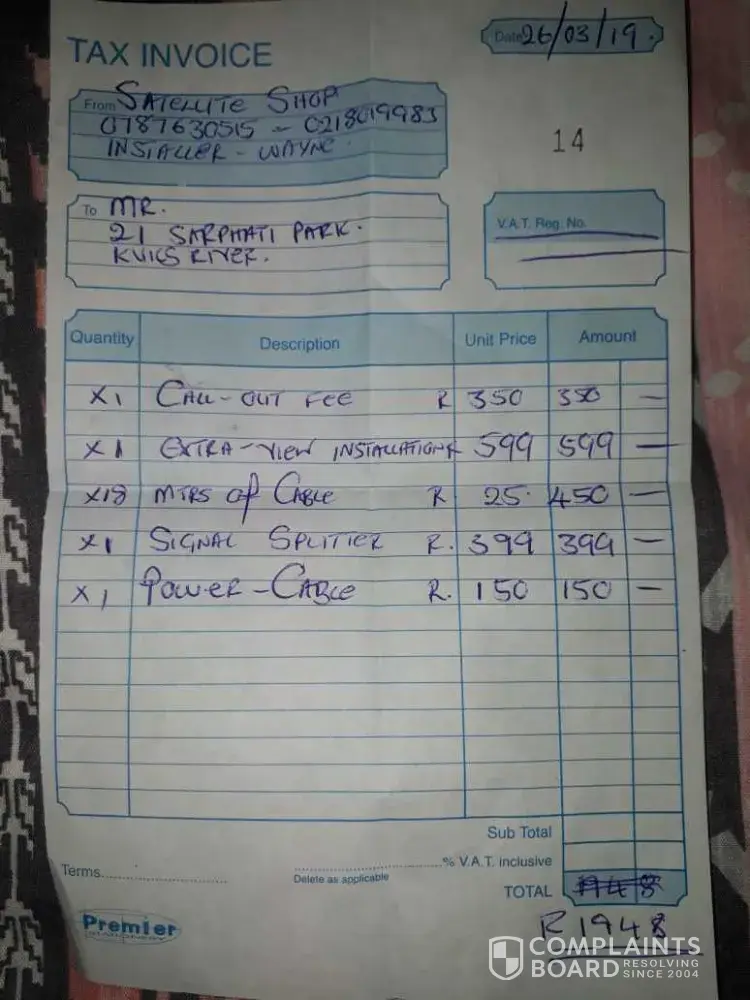 TAX INVOICE
Date 26/03/19.
From SATELLITE SHOP
0787630515 - 0218019983
INSTALLER - WAYNE
14
To MR.
21 SARPHATI PARK.
KUILS RIVER.
V.A.T. Reg. No.
Quantity Description Unit Price Amount
X1 CALL-OUT FEE R 350 350 —
X1 EXTRA-VIEW INSTALLATION R 599 599 —
X18 MTRS of CABLE R 25. 450 —
X1 SIGNAL SPLITTER R. 399 399 —
X1 POWER-CABLE R. 150 150 —
Sub Total
% V.A.T. inclusive
Terms
Delete as applicable
TOTAL 1948
R1948
Premier
COMPLAINTS
BOARD RESOLVING
SINCE 2004